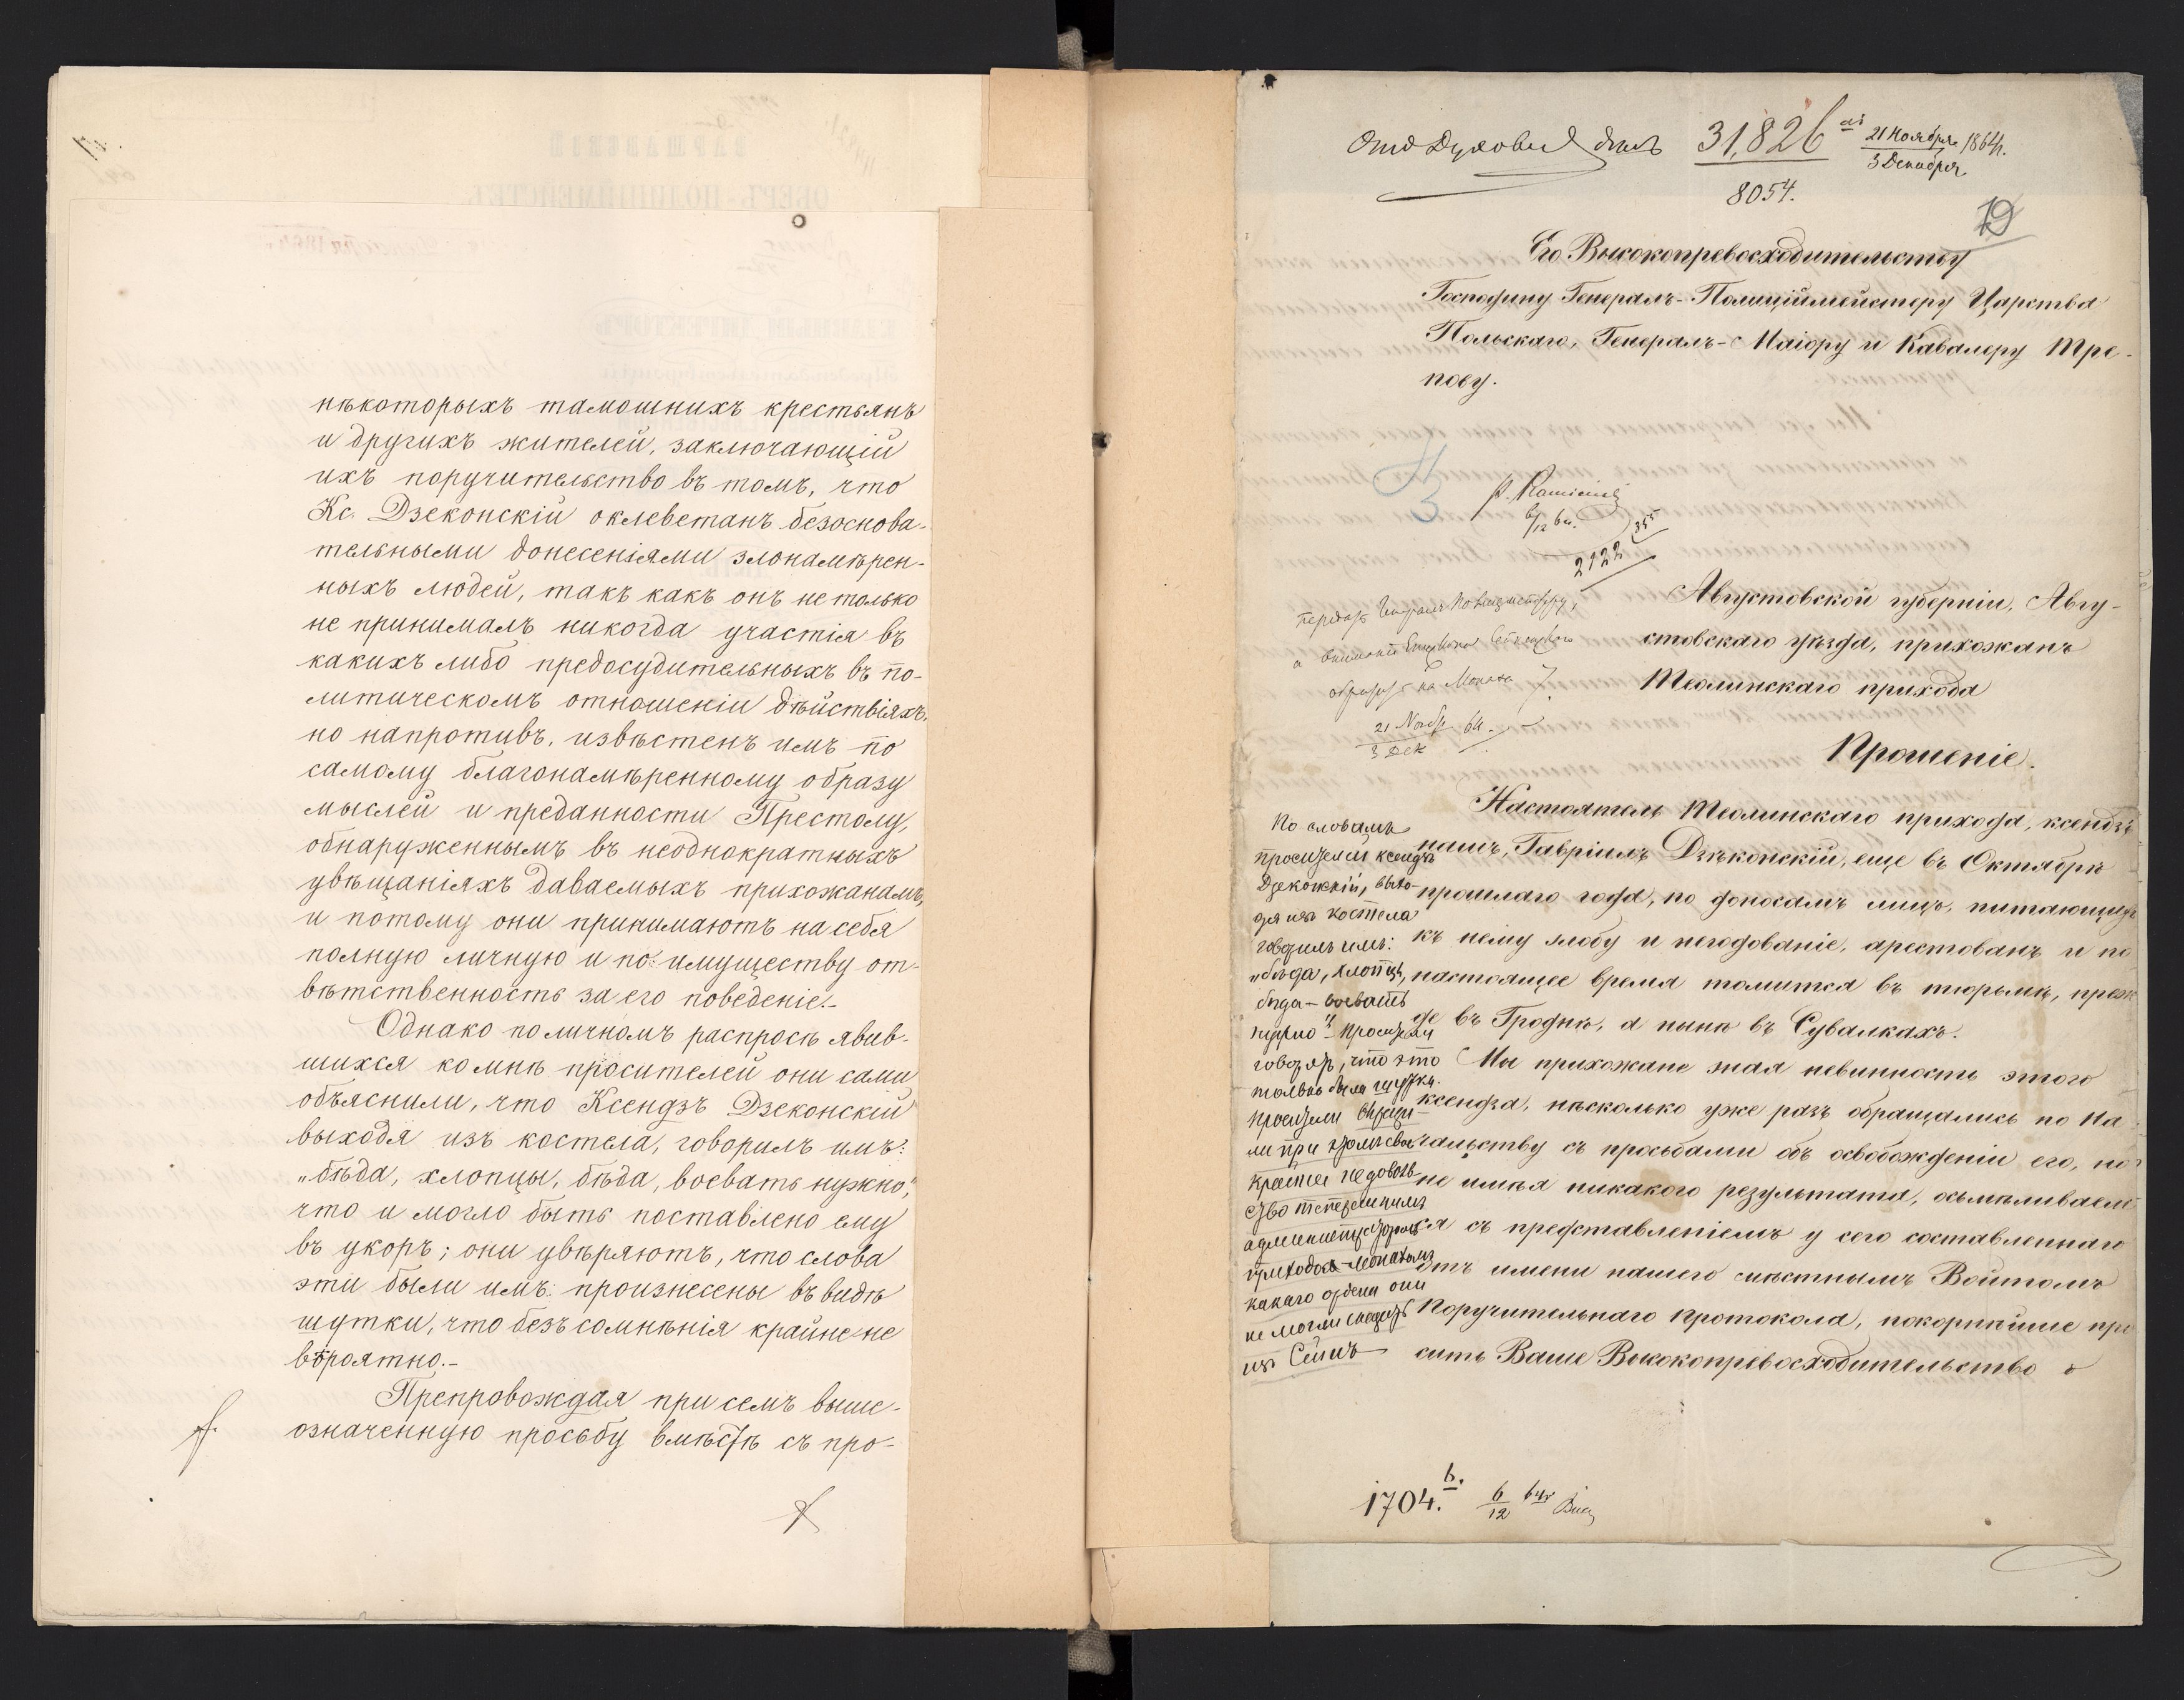 нѣкоторыхъ тамошнихъ крестьянъ
и другихъ жителей, заключающій
ихъ поручительство въ томъ, что
Кс. Дзеконскій оклеветанъ безоснова-
тельными донесеніями злонамѣрен-
ныхъ людей, такъ какъ онъ не только
не принималъ никогда участія въ
какихъ либо предосудительныхъ въ по-
литическомъ отношеніи дѣйствіяхъ,
но напротивъ, извѣстенъ имъ по
самому благонамѣренному образу
мыслей и преданности Престолу,
обнаруженнымъ въ неоднократныхъ
увѣщаніяхъ даваемыхъ прихожанамъ,
и потому они принимаютъ на себя
полную личную и по имуществу от-
вѣтственность за его поведеніе.-
Однако по личномъ распросѣ явив-
шихся ко мнѣ просителей они сами
объяснили, что Ксендзъ Дзеконскій
выходя изъ костела, говорилъ имъ:
„бѣда, хлопцы, бѣда, воевать нужно,"
что и могло быть поставлено ему
въ укоръ; они увѣряютъ, что слова
эти были имъ произнесены въ видѣ
шутки, что безъ сомнѣнія крайне не
вѣроятно.-
Препровождая при семъ выше-
означенную просьбу вмѣстѣ съ про-
31,826 21 Ноября 1864 г.
3 Декабря
8054.
19
Его Высокопревосходительству
Господину Генералъ-Полиціймейстеру Царства
Польскаго, Генералъ-Маіору и Кавалеру Тре-
пову.
2122
Августовской губерніи, Авгу-
стовскаго уѣзда, прихожанъ
Теолинскаго прихода
21 64.
3 Дек
Прошеніе.
Настоятель Теолинскаго прихода, ксендзъ
нашъ, Гавріилъ Дзѣконскій, еще въ Октябрѣ
прошлаго года, по доносамъ лицъ, питающихъ
къ нему злобу и негодованіе, арестованъ и по
настоящее время томится въ тюрьмѣ, преж
де въ Гроднѣ, а нынѣ въ Сувалкахъ.
Мы прихожане зная невинность этого
ксендза, нѣсколько уже разъ обращались по На
чальству съ просьбами объ освобожденіи его, но
не имѣя никакого результата, осмѣливаем
ся съ представленіемъ у сего составленнаго
отъ имени нашего мѣстнымъ Войтомъ
Поручительнаго протокола, покорнѣйше про
сить Ваше Высокопревосходительство о
По словамъ
просителей ксендзъ
Дзеконскій, выхо-
дя изъ костела
говорилъ имъ:
„бѣда, хлопцы,
бѣда - воевать
нужно" - Просители
говорятъ, что это
только была шутка.
Просители
ли при этомъ свое
крайнее недоволь-
ство теперешнимъ
администраторомъ
прихода - монахомъ
какаго ордена они
не могли сказать
изъ Сейнъ
1704. 6
12